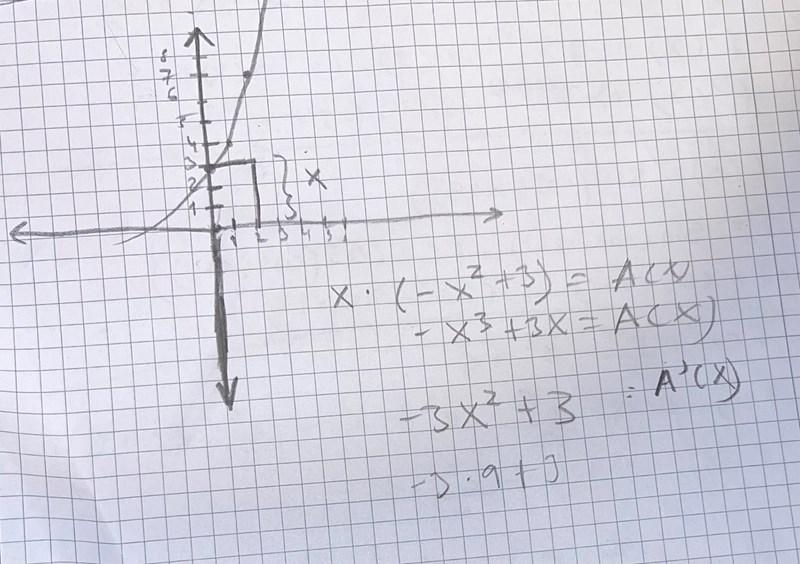 8
7
6
5
4
3
2
1
1 2 3 4 5
x
x · (-x² + 3) = A(x)
-x³ + 3x = A(x)
-3x² + 3 = A'(x)
-3 · 9 + 3